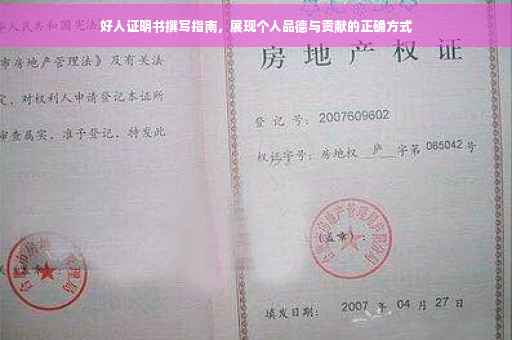 好人证明书撰写指南，展现个人品德与贡献的正确方式
人民共和国宪法
市房地产管理法》及有关
定，对权利人申请登记本证所
审查属实，准予登记，特发此
房地产权证
登记号：2007609602
权证字号：房地权 庐 字第 065042 号
（盖章）：
填发日期：2007 年 04 月 27 日